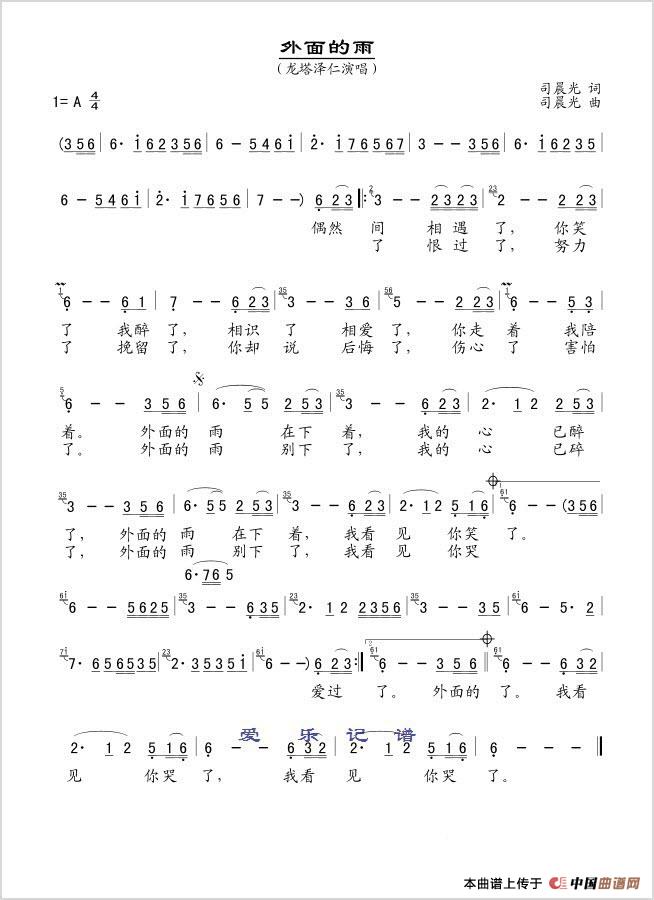 外面的雨
（龙塔泽仁演唱）
司晨光 词
1= A 4/4
司晨光 曲
(3 5 6 | 6· i 6 2 3 5 6 | 6 - 5 4 6 i | 2· i 7 6 5 6 7 | 6 - - 3 5 6 | 6· i 6 2 3 5 |
6 - 5 4 6 i | 2· i 7 6 5 6 | 7 - -) 6 2 3 |: 3 - - 2 3 2 3 | 2 - 2 2 3 |
偶然 间 相 遇 了， 你笑
了 恨 过 了， 努力
6 - - 6 1 | 7 - - 6 2 3 | 3 - - 3 5 | 5 - - 2 2 3 | 6 - - 5 3 |
了 我醉 了， 相识 了 相爱 了， 你走 着 我陪
了 挽留 了， 你却 说 后悔 了， 伤心 了 害怕
6 - - 3 5 6 | 6· 5 5 2 5 3 | 3 - - 6 2 3 | 2· 1 2 2 5 3 |
着。 外面的 雨 在下 着， 我的 心 已醉
了。 外面的 雨 别下 了， 我的 心 已碎
3 - - 3 5 6 | 6· 5 5 2 5 3 | 3 - - 6 2 3 | 2· 1 2 5 1 6 | 6 - - (3 5 6
了， 外面的 雨 在下 着， 我看 见 你笑 了。
了， 外面的 雨 别下 了， 我看 见 你哭
6· 7 6 5
6 - - 5 6 2 5 | 3 - - 6 3 5 | 2· 1 2 2 3 5 6 | 3 - - 3 5 | 6 - 5· 2 |
7· 6 5 6 5 3 5 | 2· 3 5 3 5 i | 6 - -) 6 2 3 :| 6 - - 3 5 6 || 6 - - 6 3 2 |
爱过 了。 外面的 了。 我看
爱 乐 记 谱
2· 1 2 5 1 6 | 6 - - 6 3 2 | 2· 1 2 6 1 6 | 6 - - - ||
见 你哭 了， 我看 见 你哭 了。
本曲谱上传于 中国曲谱网